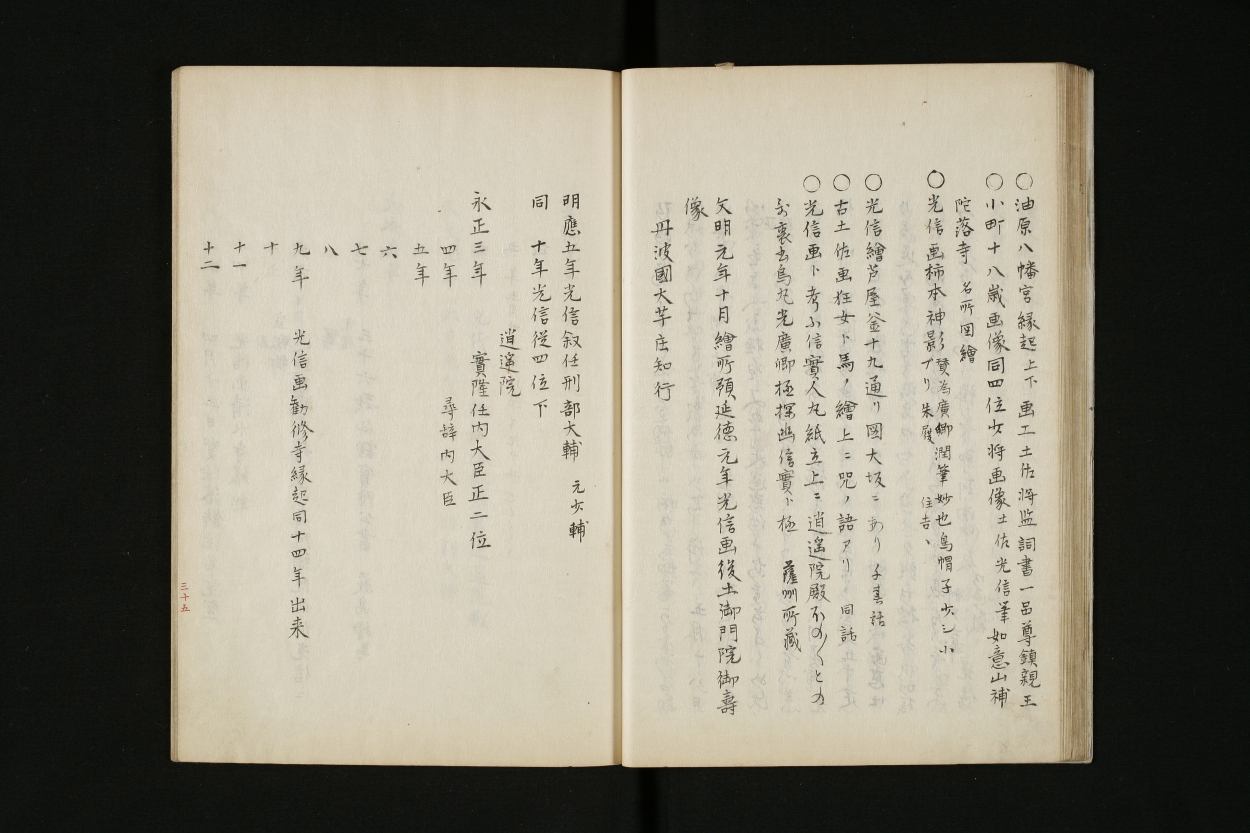 ○油原八幡宮縁起上下 画工土佐将監詞書一品尊鎮親王
○小町十八歳画像同四位少将画像土佐光信筆如意山補
陀落寺 名所図繪
○光信画柿本神影 賛為廣卿潤筆妙也烏帽子少シ小
ブリ 朱履 住吉、
○光信繪芦屋釜十九通リ図大坂ニあり
○古土佐画狂女ト馬ノ繪上ニ呪ノ語アリ 同話
○光信画ト考ふ信實人丸紙立上ニ逍遥院殿ほの〱との
哥裏書烏丸光廣卿極探幽信實ト極 薩州所蔵
文明元年十月繪所預延徳元年光信画後土御門院御壽
像
丹波國大芋庄知行
明應五年光信叙任刑部大輔 元少輔
同 十年光信従四位下
逍遥院
永正三年 實隆任内大臣正二位
四年 尋辞内大臣
五年
六
七
八
九年 光信画勧修寺縁起同十四年出来
十
十一
十二
三十五